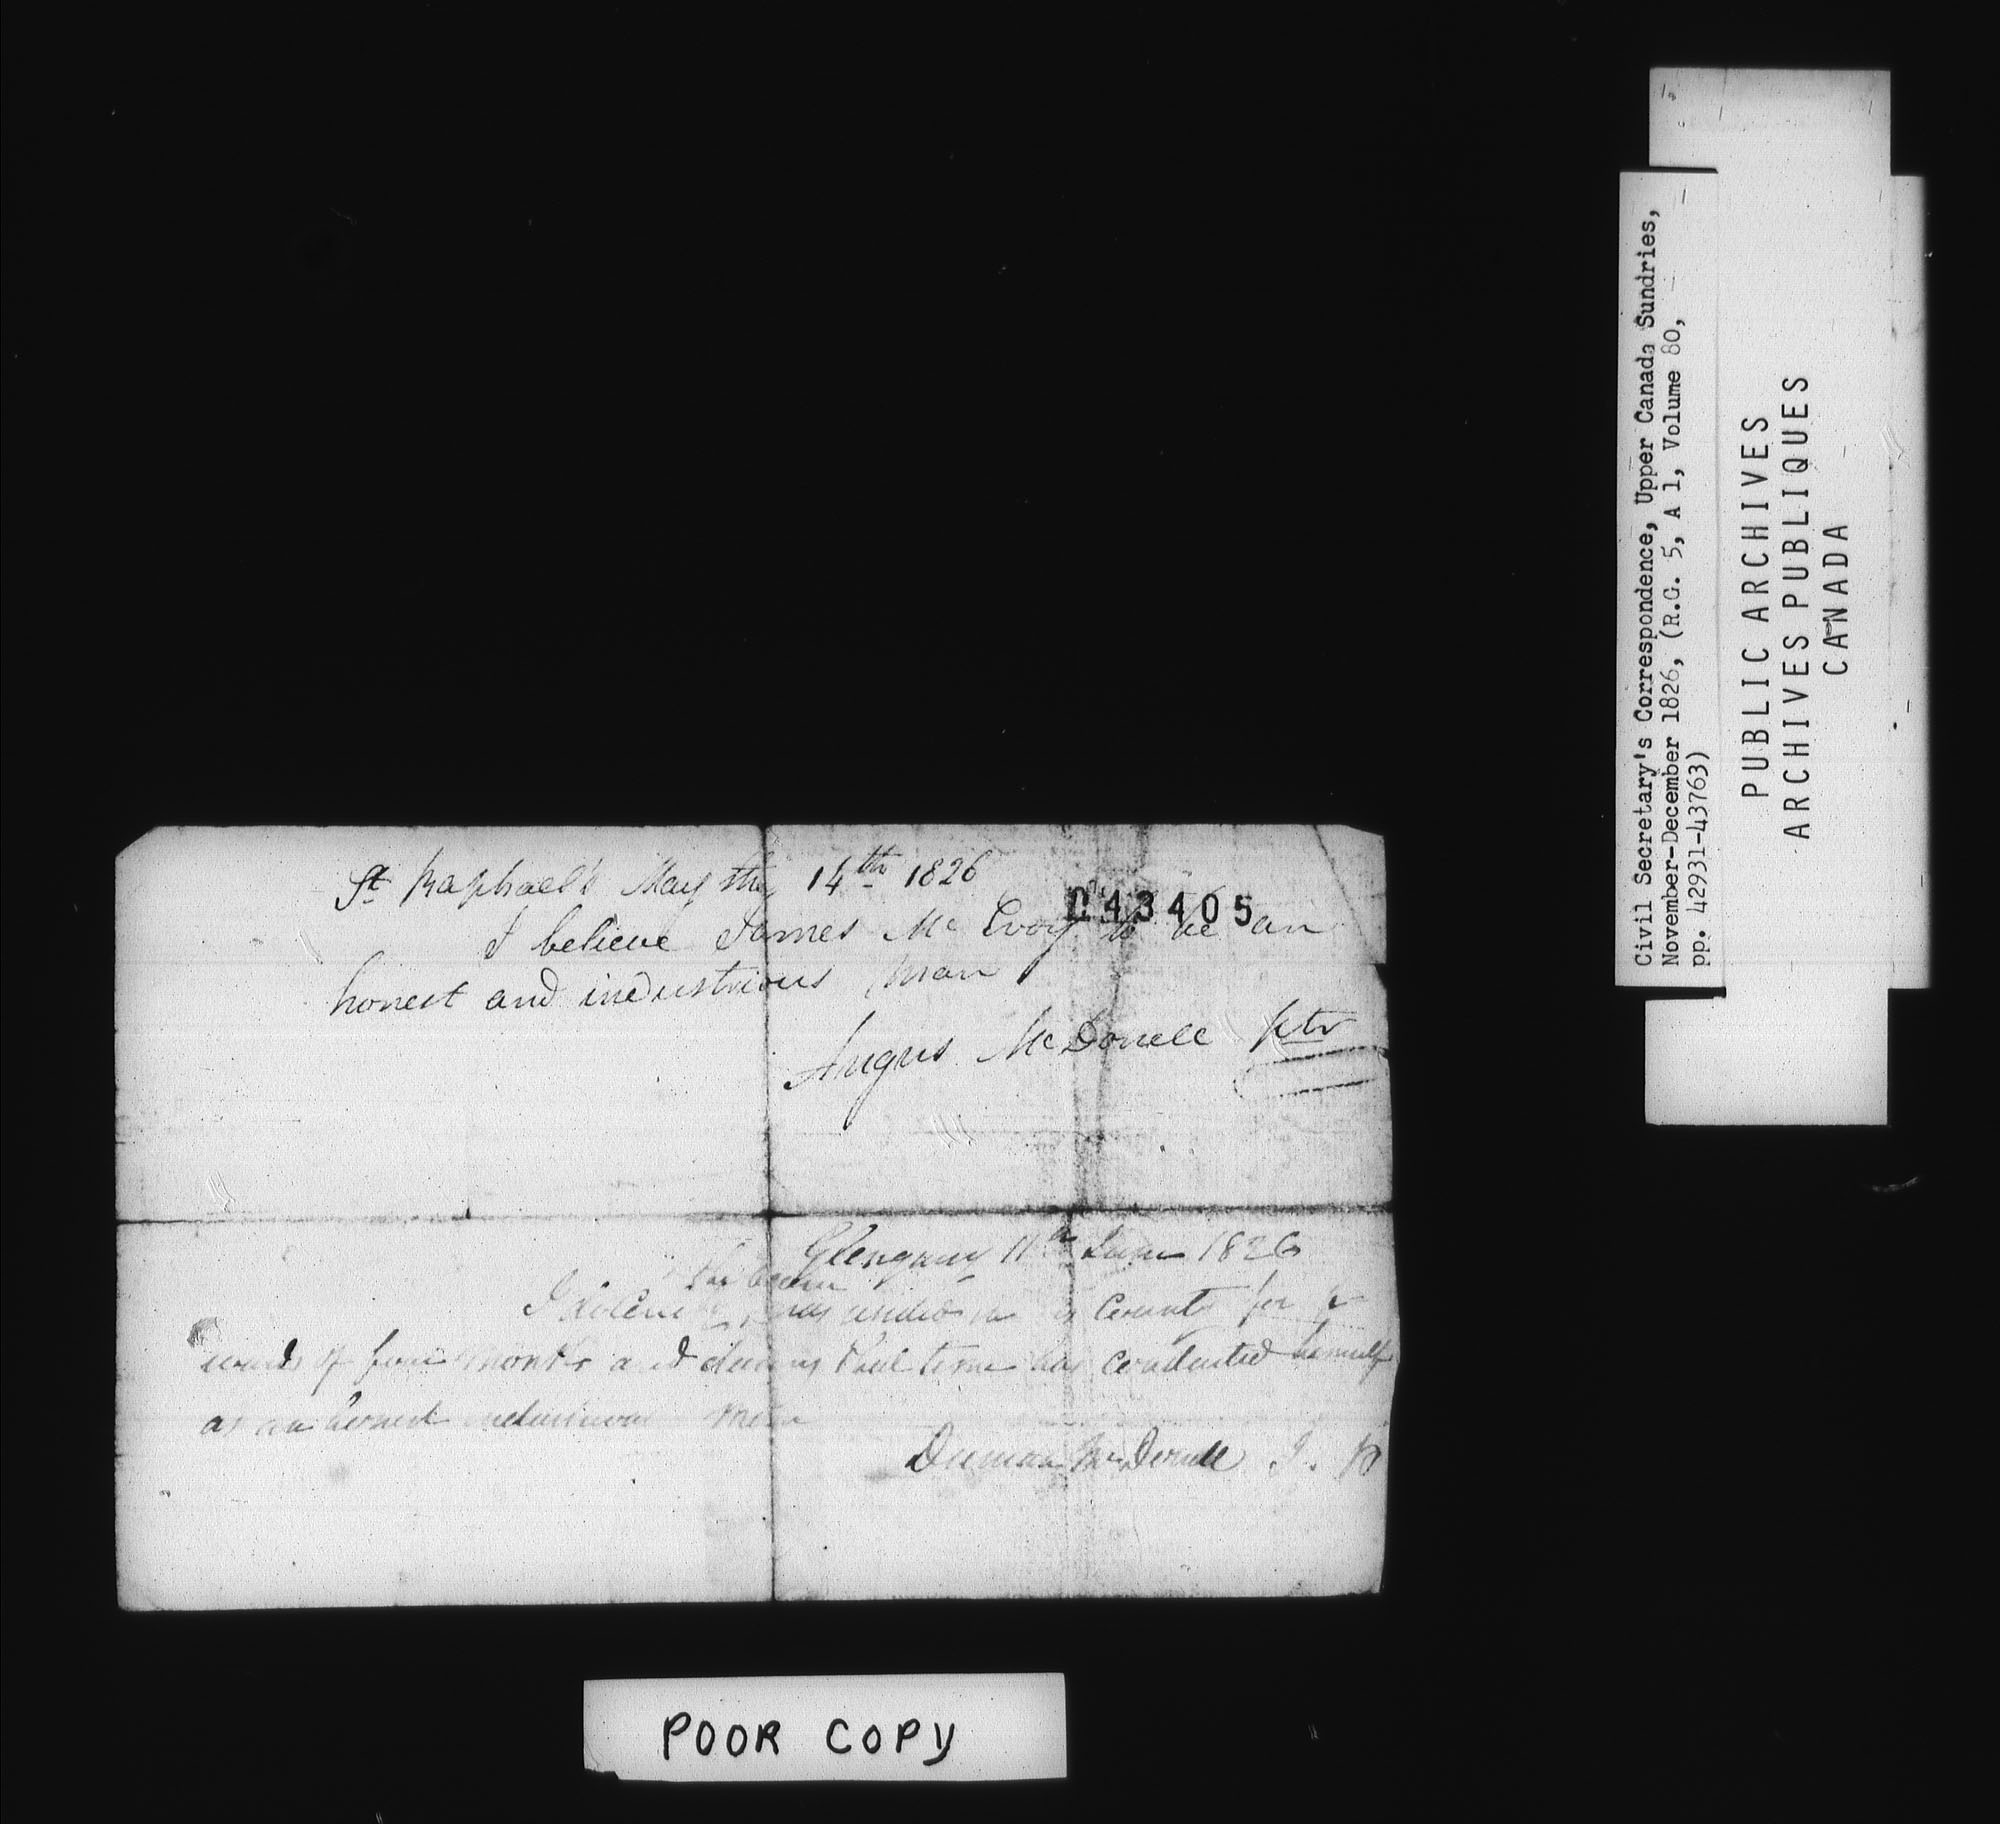 St Raphael's May the 14th 1826
043405
I believe James Mc Evoy to be an
honest and industrious man
Angus McDonell ptr
Glengarry 11th June 1826
the bearer
I has in County for
wards of four months and during that time has conducted himself
as an honest industrious man
Duncan McDonell J. P
POOR COPY
Civil Secretary's Correspondence, Upper Canada Sundries,
November-December 1826, (R.G. 5, A 1, Volume 80,
pp. 42931-43763)
PUBLIC ARCHIVES
ARCHIVES PUBLIQUES
CANADA